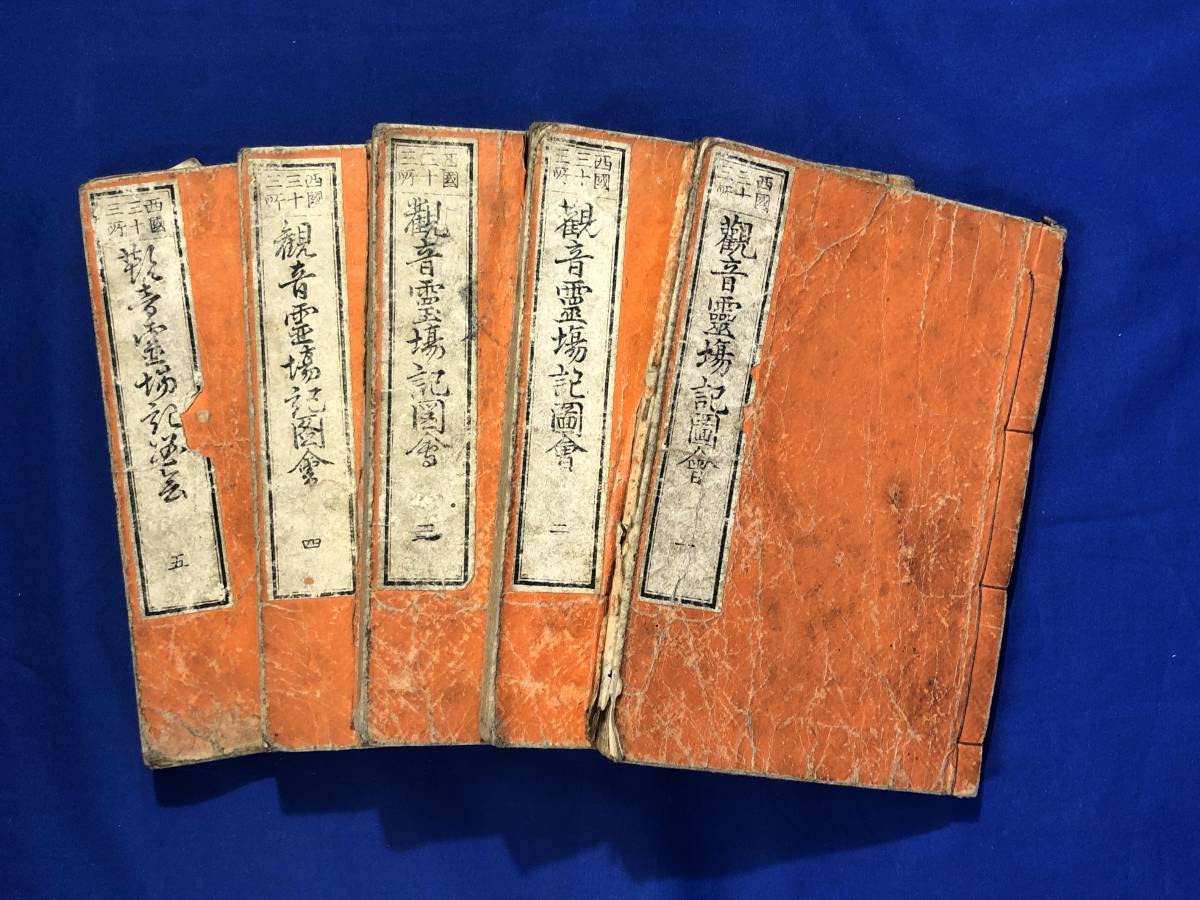 西國
三十
三所
觀音靈塲記圖會
一
西國
三十
三所
觀音靈塲記圖會
二
西國
三十
三所
觀音霊塲記図會
三
西國
三十
三所
観音霊塲記図會
四
西國
三十
三所
觀音霊場記圖会
五